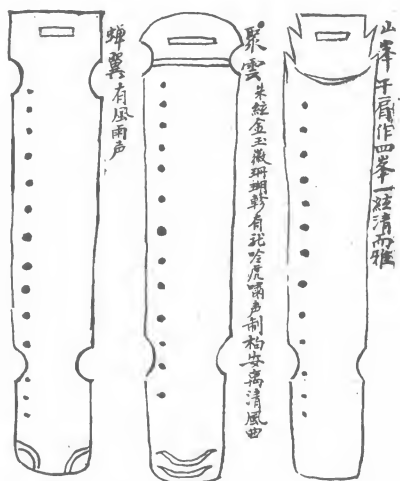 山峯 于肩作四峯一絃清而雅
聚雲 朱絃金玉徽珊瑚軫有龍吟虎嘯声制柏安离清風曲
蝉翼 有風雨声